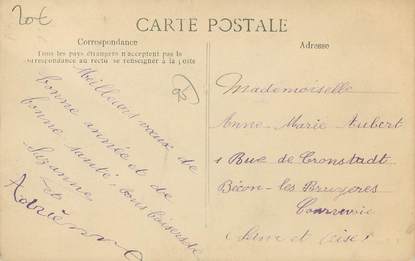 20€
CARTE POSTALE
Correspondance
Tous les pays étrangers n'acceptent pas la
correspondance au recto se renseigner à la poste
Adresse
Meilleurs vœux de
bonne année et de
bonne santé, bons baisers de
Suzanne
et
Adrienne
Mademoiselle
Anne-Marie Aubert
1 Rue de Cronstadt
Bécon-les-Bruyères
Courbevoie
Seine et Oise